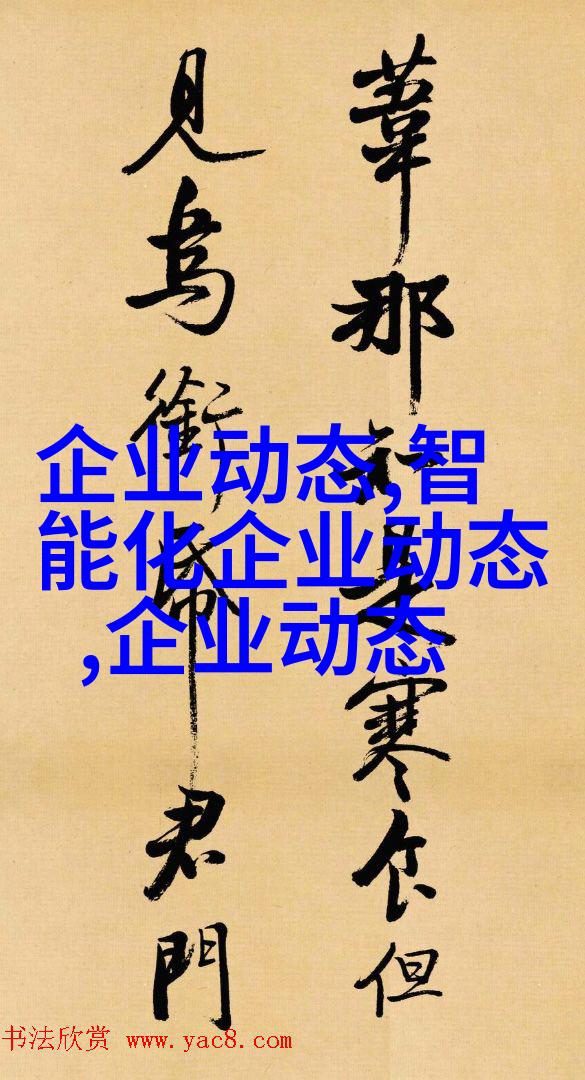 葦那知是寒食但
見烏銜帋君門
企业动态,智
能化企业动态
,企业动态
书法欣赏 www.yac8.com